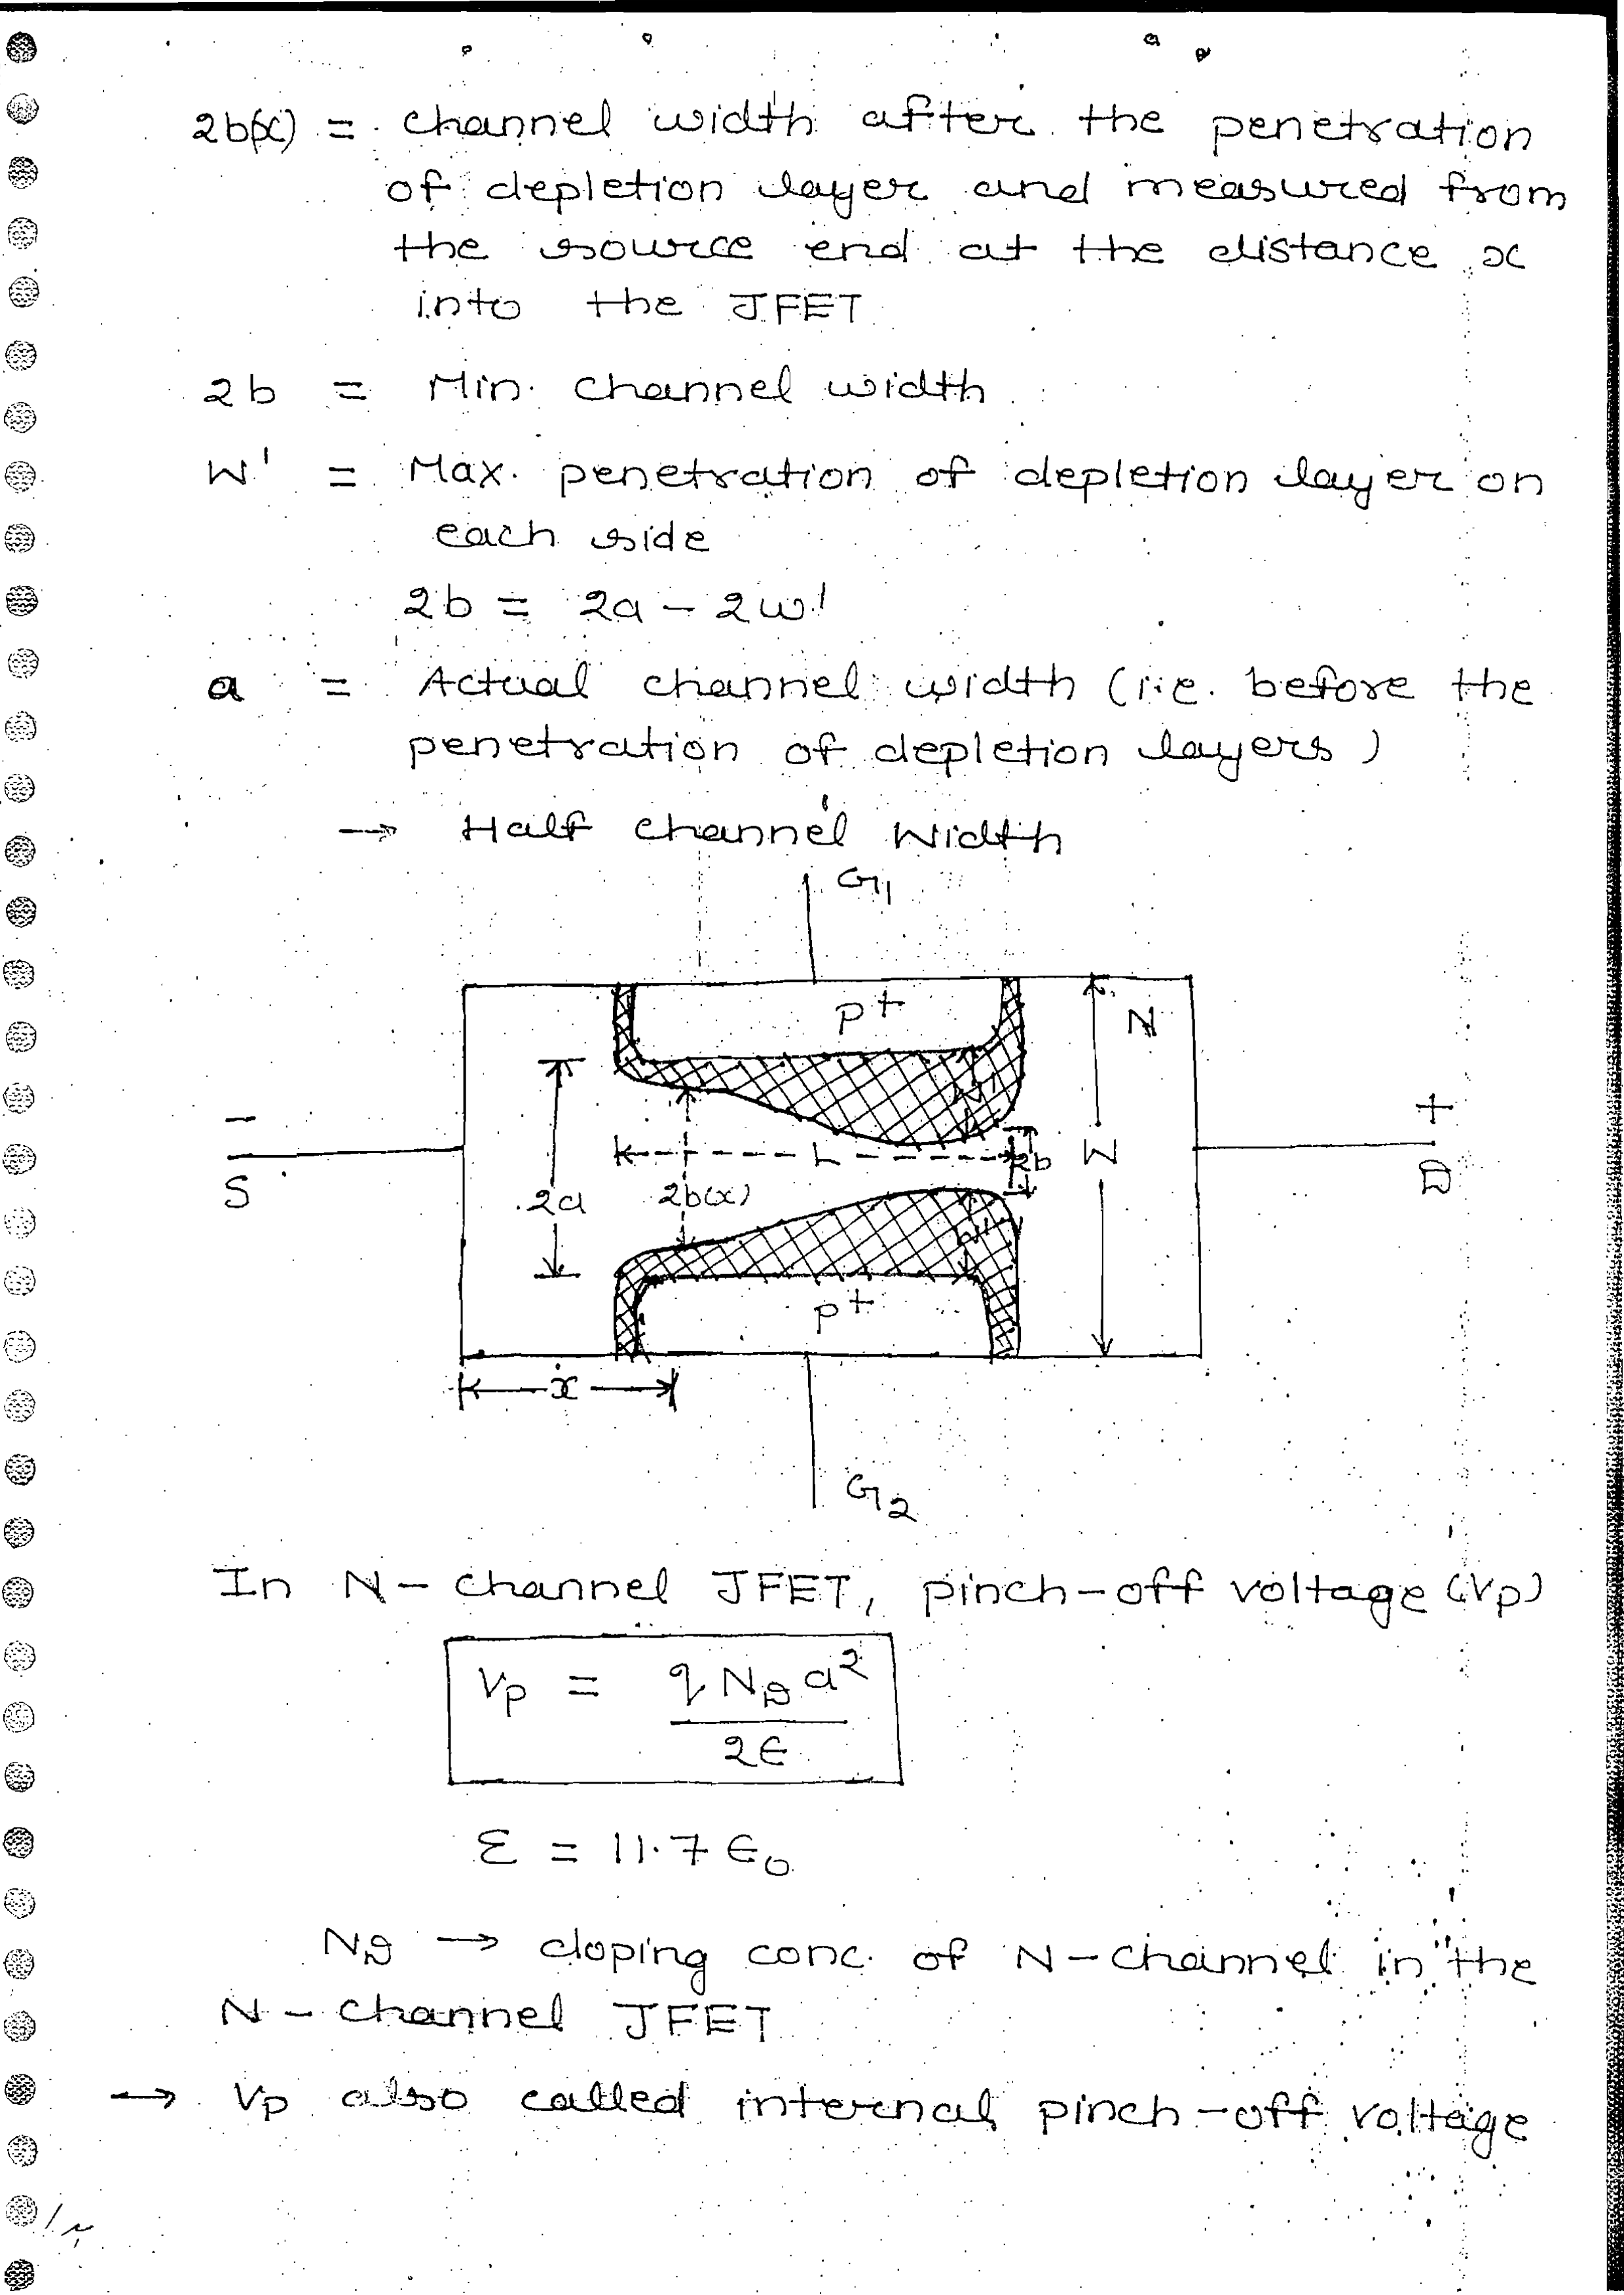 2b(x) = channel width after the penetration
of depletion layer and measured from
the source end at the distance x
into the JFET
2b = Min. channel width
W' = Max. penetration of depletion layer on
each side
2b = 2a - 2w'
a = Actual channel width (i.e. before the
penetration of depletion layers)
→ Half channel Width
G1
P+
N
W'
- S
2a
2b(x)
L
2b
W
+ D
W'
P+
x
G2
In N-channel JFET, pinch-off voltage (Vp)
Vp = q ND a² / 2ϵ
ε = 11.7 ϵ0
ND → doping conc. of N-channel in the
N-channel JFET
→ Vp also called internal pinch-off voltage